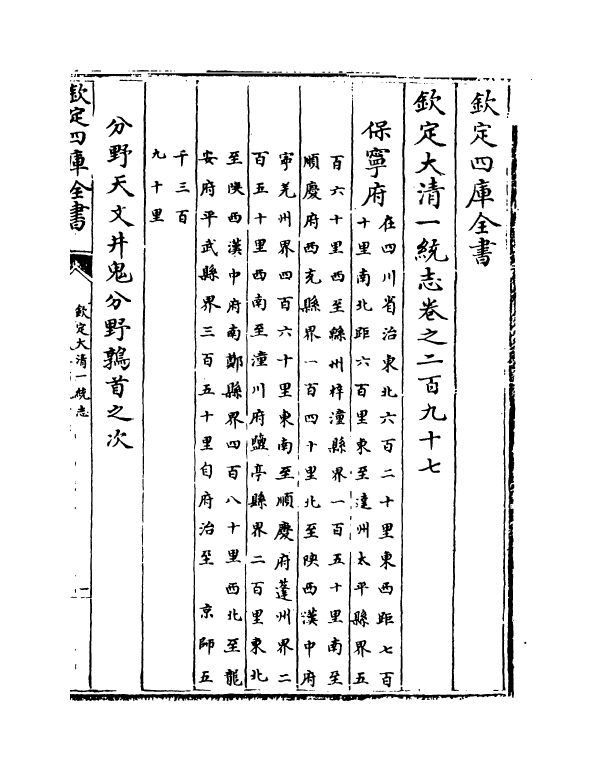 欽定四庫全書
欽定大清一統志卷之二百九十七
保寧府
在四川省治東北六百二十里東西距七百
十里南北距六百里東至達州太平縣界五
百六十里西至綿州梓潼縣界一百五十里南至
順慶府西充縣界一百四十里北至陝西漢中府
寧羌州界四百六十里東南至順慶府蓬州界二
百五十里西南至潼川府鹽亭縣界二百里東北
至陝西漢中府南鄭縣界四百八十里西北至龍
安府平武縣界三百五十里自府治至 京師五
千三百
九十里
分野天文井鬼分野鶉首之次
欽定四庫全書
欽定大清一統志
一